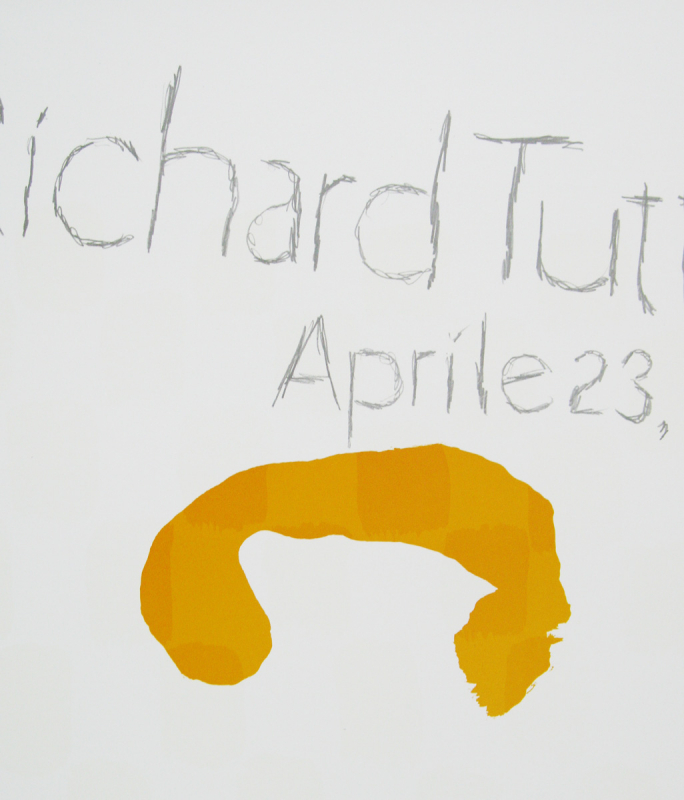 Richard Tutt
Aprile 23,